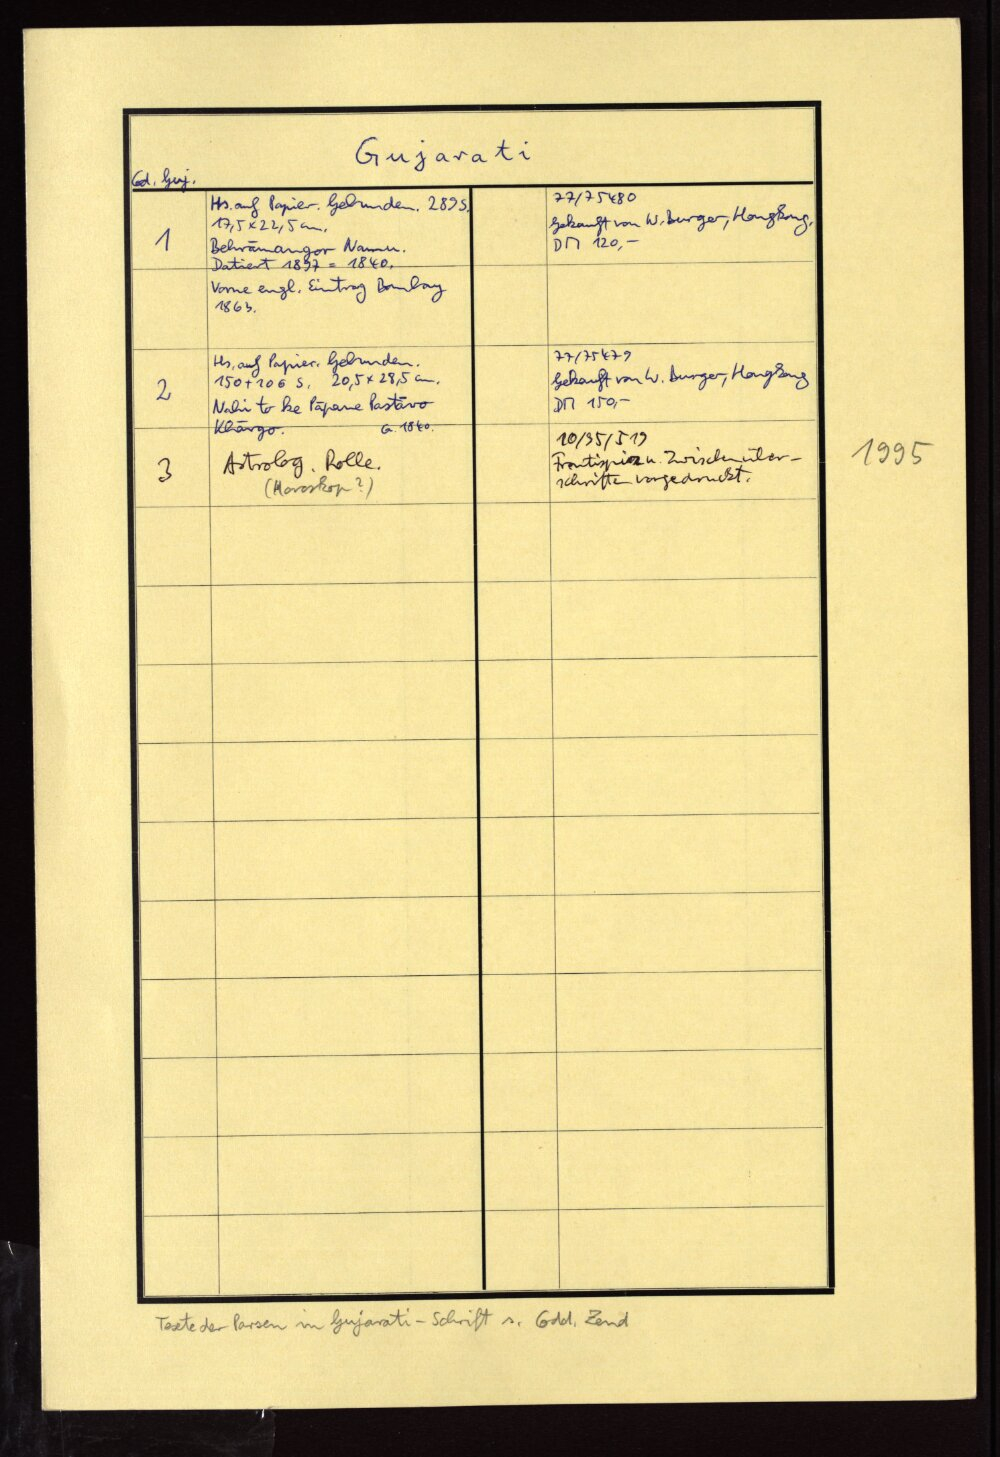 Gujarati
Cd. Guj.
1
Hs. auf Papier. Gebunden. 289 S.
17,5 x 22,5 cm.
Behrāmangor Namu.
Datiert 1897 = 1840.
Vorne engl. Eintrag Bombay
1863.
77/75480
Gekauft von W. Burger, Hongkong,
DM 120,-
2
Hs. auf Papier. Gebunden.
150 + 106 S. 20,5 x 28,5 cm.
Nahi to ke Pāpene Pastāvo
Khārgo. ca. 1840.
77/75479
Gekauft von W. Burger, Hongkong
DM 150,-
3
Astrolog. Rolle.
(Horoskop?)
10/95/519
Frontispiz u. Zwischenüber-
schriften vorgedruckt.
1995
Texte der Parsen in Gujarati-Schrift s. Codd. Zend